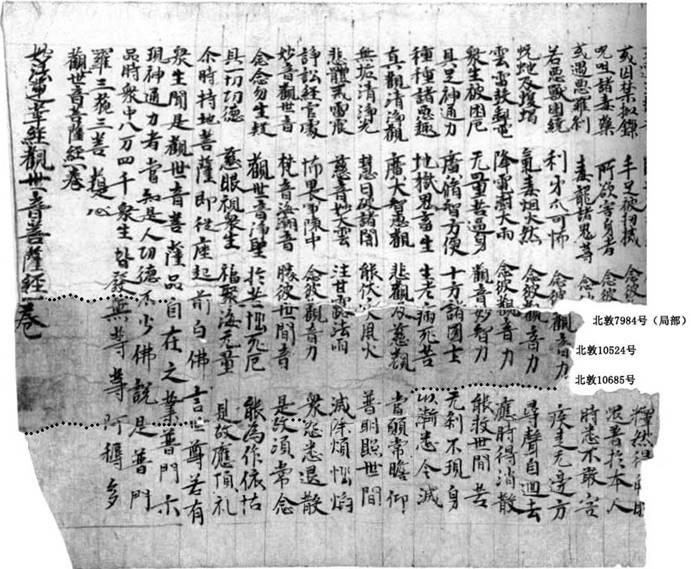 或囚禁枷鎖 手足被杻械 念彼 釋然得
呪咀諸毒藥 所欲害身者 念彼 還著於本人
或遇惡羅刹 毒龍諸鬼等 念彼 時悉不敢害
若惡獸圍繞 利牙爪可怖 念彼觀音力 疾走无邊方
蚖蛇及蝮蝎 氣毒烟火然 念彼觀音力 尋聲自迴去
雲雷鼓掣電 降雹澍大雨 念彼觀音力 應時得消散
衆生被困厄 无量苦逼身 觀音妙智力 能救世間苦
具足神通力 廣脩智方便 十方諸國土 无刹不現身
種種諸惡趣 地獄鬼畜生 生老病死苦 以漸悉令滅
真觀清淨觀 廣大智惠觀 悲觀及慈觀 常願常瞻仰
無垢清淨光 慧日破諸闇 能伏災風火 普明照世間
悲體戒雷震 慈音妙大雲 注甘露法雨 滅除煩惱焰
諍訟經官處 怖畏軍陣中 念彼觀音力 衆怨悉退散
妙音觀世音 梵音海潮音 勝彼世間音 是故須常念
念念勿生疑 觀世音淨聖 於苦惱死厄 能為作依怙
具一切功德 慈眼視衆生 福聚海无量 是故應頂礼
尒時持地菩薩即從座起前白佛言世尊若有
衆生聞是觀世音菩薩品自在之業普門示
現神通力者當知是人功德不少佛說是普門
品時衆中八万四千衆生皆發無等等阿耨多
羅三藐三菩提心
觀世音菩薩經一卷
妙法蓮華經觀世音菩薩經一卷
北敦7984号（局部）
北敦10524号
北敦10685号